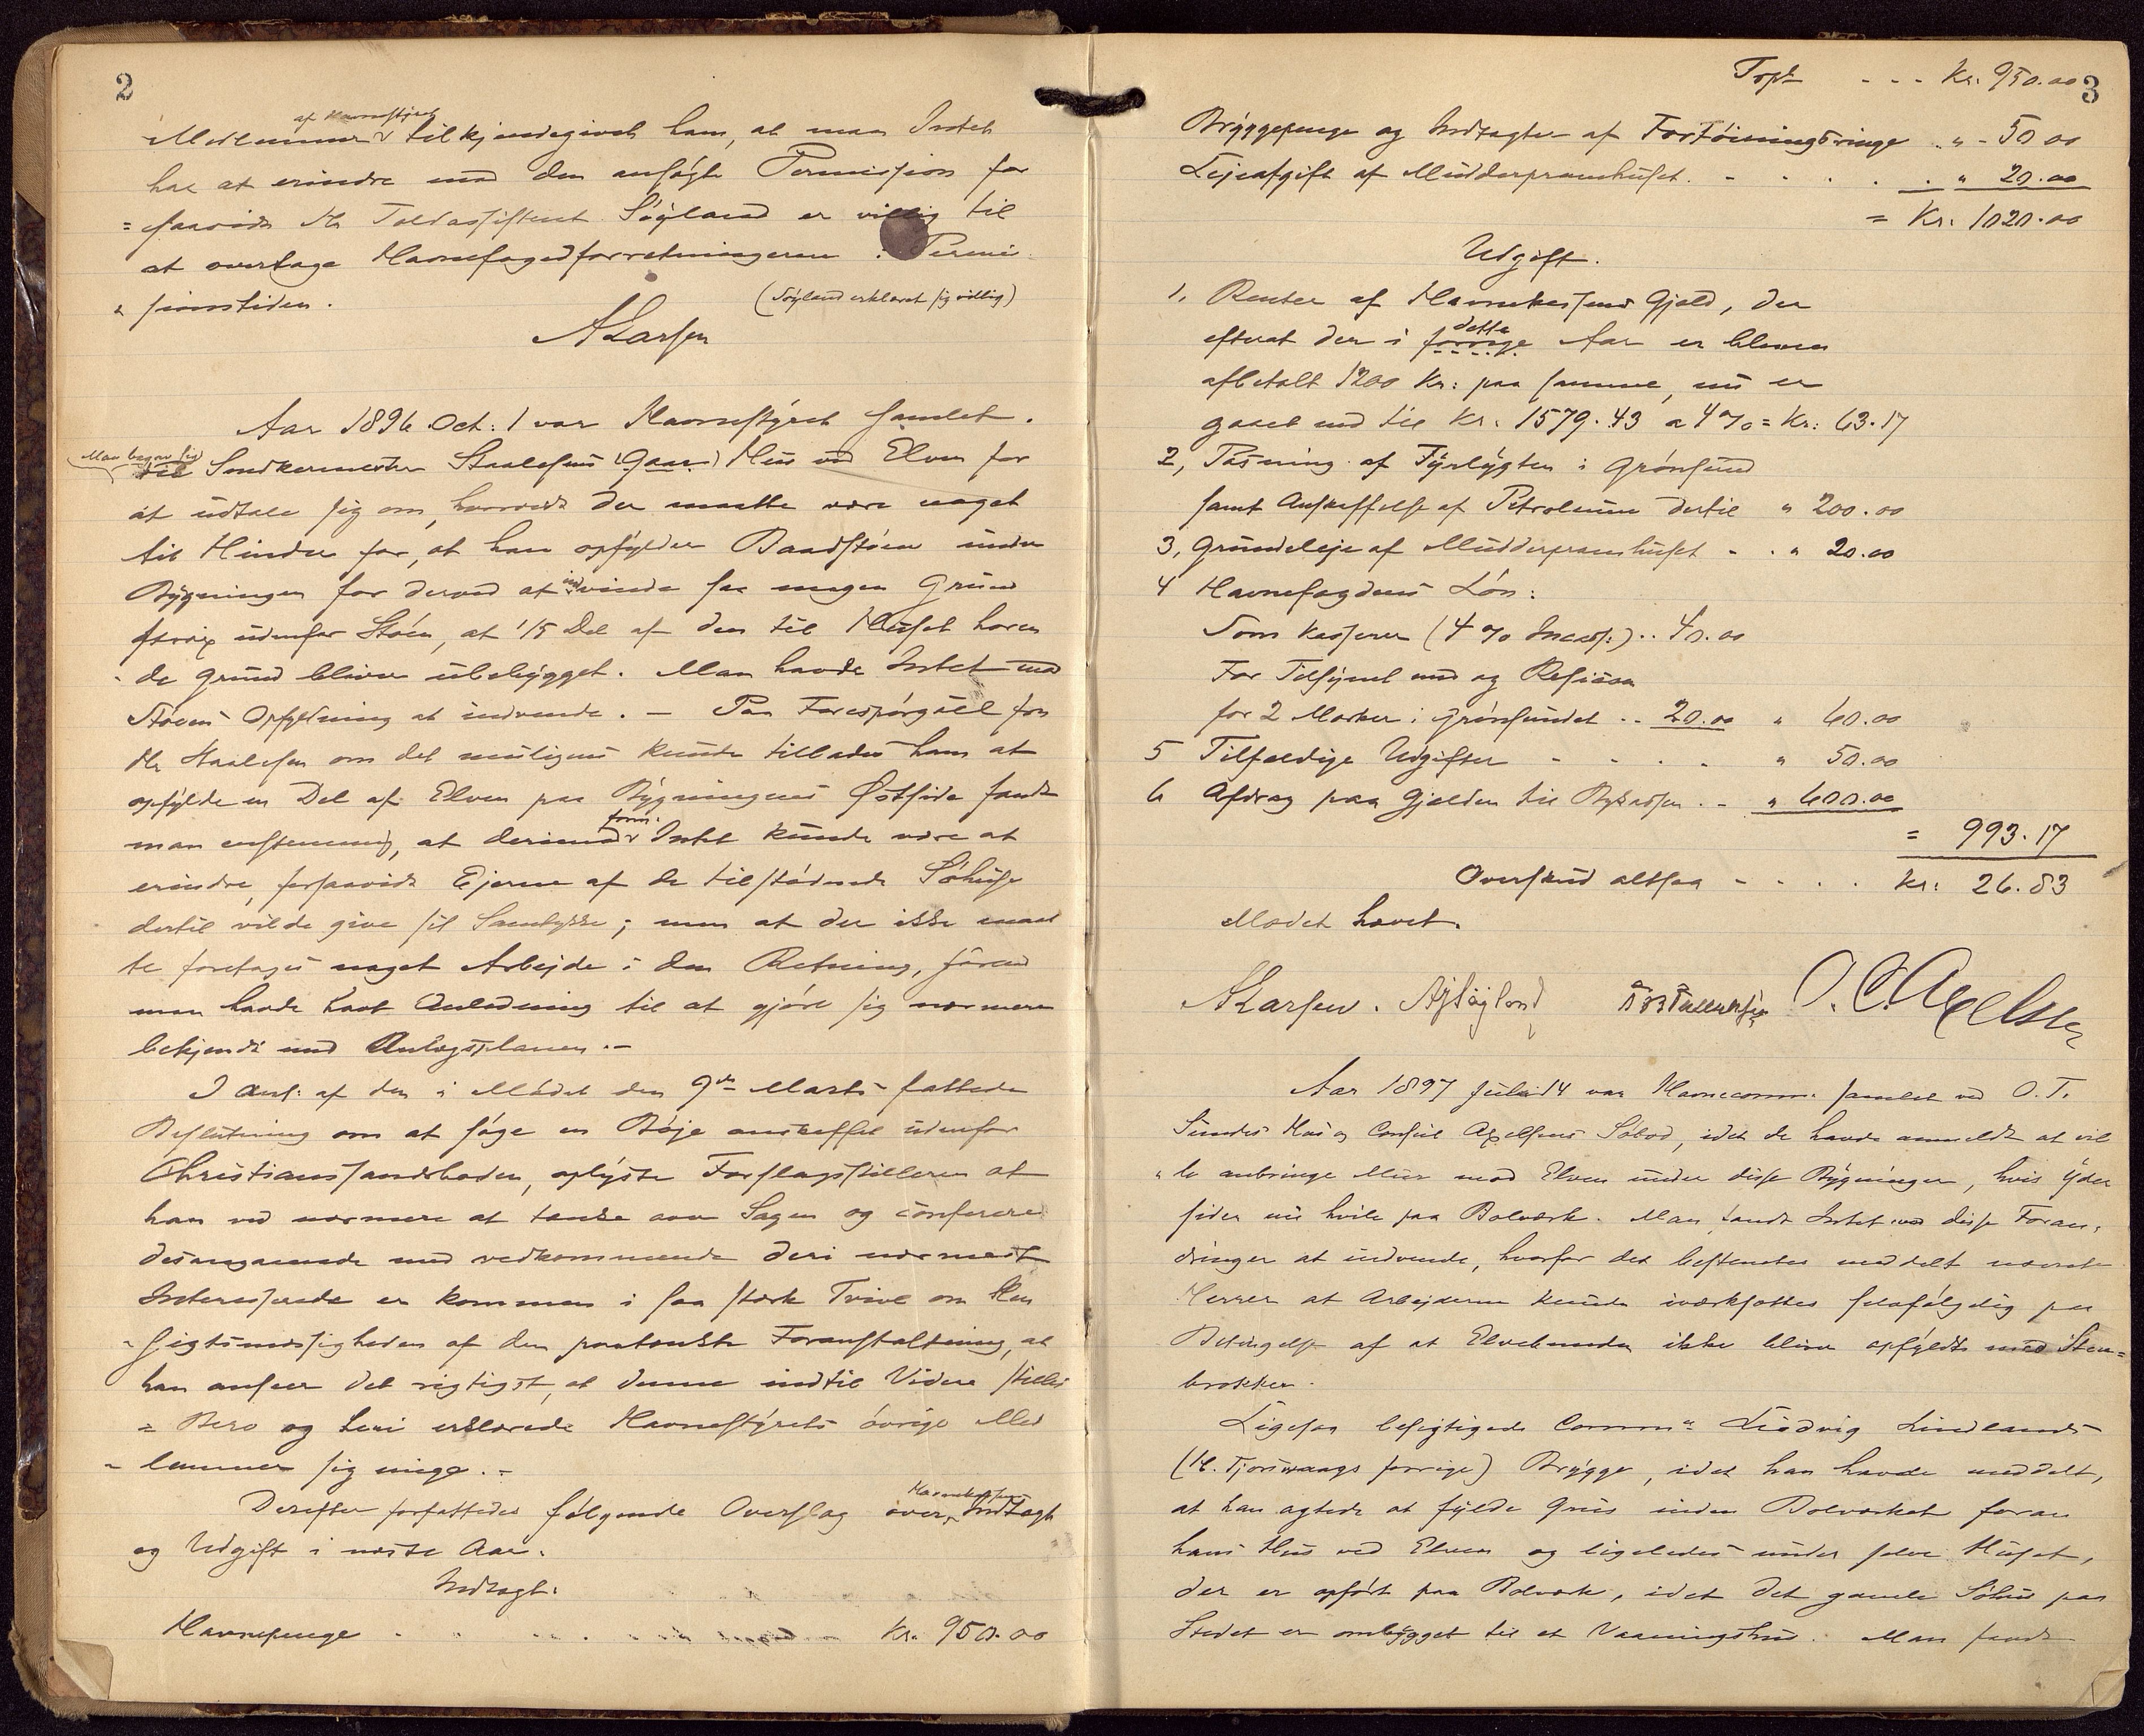 2
af Havnestyret
Medlemmer tilkjendegivet ham, at man Intet
har at erindre mod den ansøgte Permission for
= saavidt Hr Toldassistent Søyland er villig til
at overtage Havnefogedforretningerne i Permi
" sionstiden.
(Søyland erklæret sig villig)
A Larsen
Aar 1896 Oct: 1 var Havnestyret samlet.
Man begav sig
til Staalesens (Gaar) Hus ved Elven for
at udtale sig om, hvorvidt der maatte være noget
til Hinder for, at han opfylder Baadstøen under
Bygningen for derved at indvinde saa megen Grund
udenfor Støen, at 1/5 Del af den til Huset høren
- de Grund bliver ubebygget. Man havde Intet mod
Støens Opfyldning at indvende. — Paa Forespørgsel fra
Hr Staalesen om det muligens kunde tillades ham at
opfylde en Del af Elven paa Bygningens Østside fandt
man enstemmig, at derimod Intet kunde være at
erindre, forsaavidt Ejerne af de tilstødende Søhuse
dertil vilde give sit Samtykke; men at der ikke maat
te foretages noget Arbejde i den Retning, førend
man havde havt Anledning til at gjøre sig nærmere
bekjendt med Anlægsplanen. —
I Anl: af den i Mødet den 9de Marts fattede
Beslutning om at søge en Bøje anskaffet udenfor
Christianssandsboden, oplyste Forslagsstilleren at
han ved nærmere at tænke over Sagen og conferere
desangaaende med vedkommende deri nærmest
Interesserede er kommen i saa stærk Tvivl om Hen
- sigtsmæssigheden af den paatænkte Foranstaltning, at
han anseer det rigtigst, at denne indtil Videre stilles
= Bero og heri erklærede Havnestyrets øvrige Med
- lemmer sig enige. -
Havnekassens
Derefter forfattedes følgende Overslag over Indtægt
og Udgift i næste Aar.
Indtægt:
Havnepenge . . . . . Kr. 950.00
3
Tpt - - - Kr: 950.00
Bryggepenge og Indtægter af Fortøiningsringe " - 50 00
Lejeafgift af Mudderpramhuset. - . . . . " 20.00
= Kr: 1020.00
Udgift.
1, Renter af Havnekassens Gjæld, der
dette
efterat der i forrige Aar er bleven
afbetalt 1200 Kr: paa samme, nu er
gaaet ned til Kr. 1579.43 a 4 % = Kr: 63.17
2, Pasning af Fyrlygten i Grønsund
samt Anskaffelse af Petroleum dertil " 200.00
3, Grundleje af Mudderpramhuset - . " 20.00
4 Havnefogdens Løn:
Som Kasserer (4 % Incass:) .. 40.00
For Tilsynet med og
for 2 Mærker i Grønsundet .. 20.00 " 60.00
5 Tilfældige Udgifter - - . . " 50.00
6 Afdrag paa Gjælden til Bykassen. - " 600.00
= 993.17
Overskud altsaa - - . . . Kr: 26.83
Mødet hævet.
A Larsen. AjSøyland O. C. Axelsen
Aar 1897 Juli 14 var Havnecomm. samlet ved O. T.
Sundes Hus og Consul Axelsens Søbod, idet de havde anmeldt at vil
" le anbringe Mur mod Elven under disse Bygninger, hvis Yder
sider nu hvile paa Bolværk. Man fandt Intet mod disse Foran,
dringer at indvende, hvorfor det bestemtes meddelt nævnte
Herrer at Arbejderne kunde iværksættes selvfølgelig paa
Betingelse af at Elvebunden ikke bliver opfyldt med Sten=
brokker.
Ligesaa besigtigede Comm" Ludvig Lindlands
(H. Tjorsvaags forrige) Brygge, idet han havde meddelt,
at han agtede at fylde Grus inden Bolværket foran
hans Hus ved Elven og ligeledes under selve Huset,
der er opført paa Bolværk, idet det gamle Søhus paa
Stedet er ombygget til et Vaaningshus. Man fandt